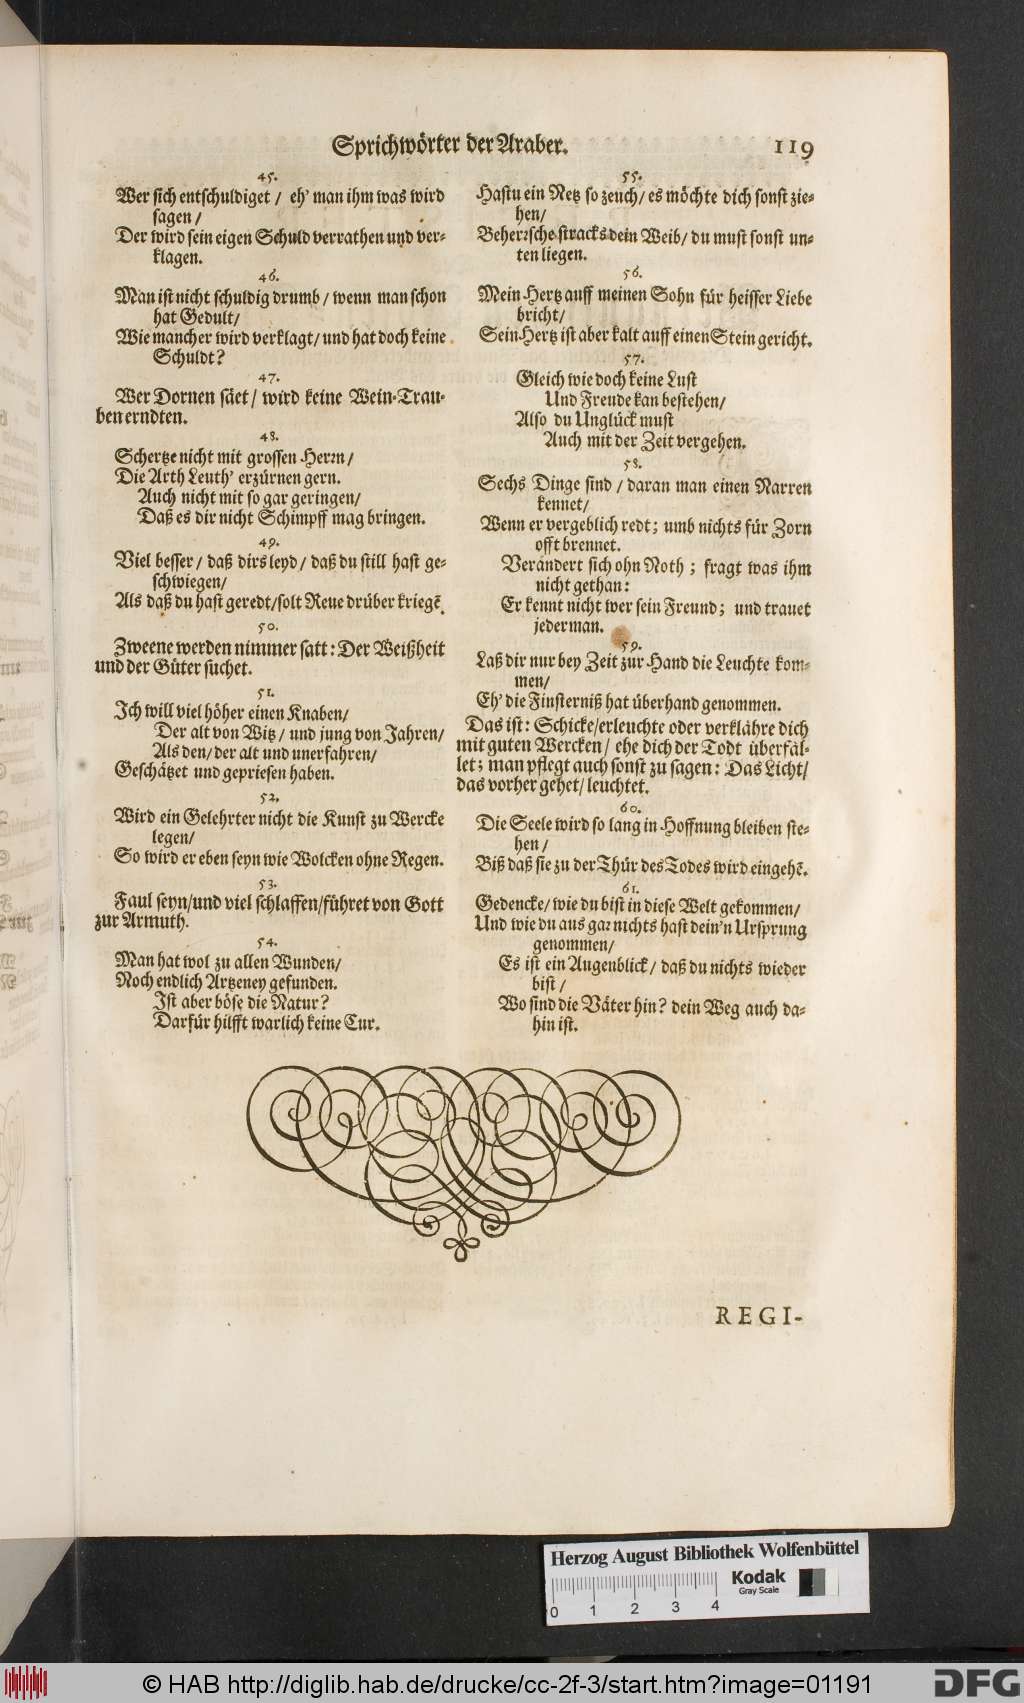 Sprichwörter der Araber. 119
45.
Wer sich entschuldiget / eh' man ihm was wird
sagen /
Der wird sein eigen Schuld verrathen und ver-
klagen.
46.
Man ist nicht schuldig drumb / wenn man schon
hat Gedult /
Wie mancher wird verklagt / und hat doch keine
Schuldt?
47.
Wer Dornen säet / wird keine Wein-Trau-
ben erndten.
48.
Schertze nicht mit grossen Herrn /
Die Arth Leuth' erzürnen gern.
Auch nicht mit so gar geringen /
Daß es dir nicht Schimpff mag bringen.
49.
Viel besser / daß dirs leyd / daß du still hast ge-
schwiegen /
Als daß du hast geredt / solt Reue drüber kriegẽ.
50.
Zweene werden nimmer satt: Der Weißheit
und der Güter suchet.
51.
Ich will viel höher einen Knaben /
Der alt von Witz / und jung von Jahren /
Als den / der alt und unerfahren /
Geschätzet und gepriesen haben.
52.
Wird ein Gelehrter nicht die Kunst zu Wercke
legen /
So wird er eben seyn wie Wolcken ohne Regen.
53.
Faul seyn / und viel schlaffen / führet von Gott
zur Armuth.
54.
Man hat wol zu allen Wunden /
Noch endlich Artzeney gefunden.
Ist aber böse die Natur?
Darfür hilfft warlich keine Cur.
55.
Hastu ein Netz so zeuch / es möchte dich sonst zie-
hen /
Beherrsche stracks dein Weib / du must sonst un-
ten liegen.
56.
Mein Hertz auff meinen Sohn für heisser Liebe
bricht /
Sein Hertz ist aber kalt auff einen Stein gericht.
57.
Gleich wie doch keine Lust
Und Freude kan bestehen /
Also du Unglück must
Auch mit der Zeit vergehen.
58.
Sechs Dinge sind / daran man einen Narren
kennet /
Wenn er vergeblich redt; umb nichts für Zorn
offt brennet.
Verändert sich ohn Noth; fragt was ihm
nicht gethan:
Er kennt nicht wer sein Freund; und trauet
jederman.
59.
Laß dir nur bey Zeit zur Hand die Leuchte kom-
men /
Eh' die Finsterniß hat überhand genommen.
Das ist: Schicke / erleuchte oder verklähre dich
mit guten Wercken / ehe dich der Todt überfäl-
let; man pflegt auch sonst zu sagen: Das Licht /
das vorher gehet / leuchtet.
60.
Die Seele wird so lang in Hoffnung bleiben ste-
hen /
Biß daß sie zu der Thür des Todes wird eingehẽ.
61.
Gedencke / wie du bist in diese Welt gekommen /
Und wie du aus gar nichts hast dein'n Ursprung
genommen /
Es ist ein Augenblick / daß du nichts wieder
bist /
Wo sind die Väter hin? dein Weg auch da-
hin ist.
REGI-
Herzog August Bibliothek Wolfenbüttel
Kodak
Gray Scale
0 1 2 3 4
© HAB http://diglib.hab.de/drucke/cc-2f-3/start.htm?image=01191
DFG